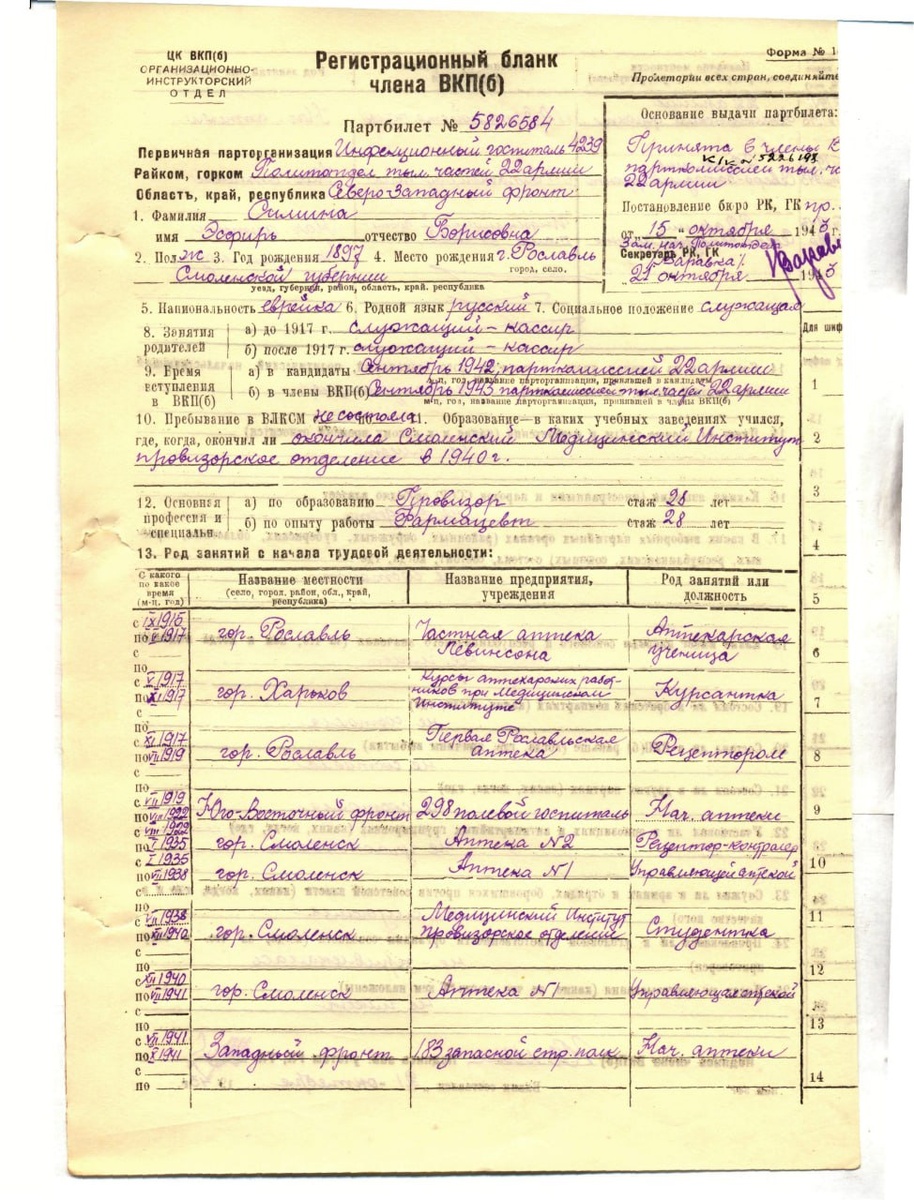 ЦК ВКП(б)
ОРГАНИЗАЦИОННО-
ИНСТРУКТОРСКИЙ
ОТДЕЛ
Регистрационный бланк
члена ВКП(б)
Форма № 1
Пролетарии всех стран, соединяйте
Партбилет № 5826584
Первичная парторганизация Инфекционный госпиталь 4239
Райком, горком Политотдел тыл. частей 22 армии
Область, край, республика Северо-Западный фронт
Основание выдачи партбилета:
Принята в члены В
К/к № 5226198
парткомиссией тыл. ча
22 армии
Постановление бюро РК, ГК пр.
от „15„ октября 194
Зам. нач. Политотдела
Секретарь РК, ГК
/Варавка/
„21 октября 194
1. Фамилия Силина
имя Эсфирь отчество Борисовна
2. Пол ж 3. Год рождения 1897 4. Место рождения г. Рославль
город, село.
Смоленской губернии
уезд, губерния, район, область, край, республика
5. Национальность еврейка 6. Родной язык русский 7. Социальное положение служащая
8. Занятия родителей
а) до 1917 г. служащий - кассир
б) после 1917 г. служащий - кассир
9. Время вступления в ВКП(б)
а) в кандидаты Сентябрь 1942, парткомиссией 22 армии
м-ц, год, название парторганизации, принявшей в кандидаты
б) в члены ВКП(б) Сентябрь 1943 парткомиссией тыл. частей 22 армии
м-ц, год, название парторганизации, принявшей в члены ВКП(б)
10. Пребывание в ВЛКСМ не состояла 11. Образование—в каких учебных заведениях учился,
где, когда, окончил ли окончила Смоленский Медицинский Институт
провизорское отделение в 1940 г.
12. Основная профессия и специальн
а) по образованию Провизор стаж 28 лет
б) по опыту работы Фармацевт стаж 28 лет
13. Род занятий с начала трудовой деятельности:
С какого по какое время (м-ц, год)
Название местности
(село, город, район, обл., край, республика)
Название предприятия, учреждения
Род занятий или должность
с IX 1915
по V 1917 гор. Рославль Частная аптека Левинсона Аптекарская ученица
с
по
с V 1917
по XI 1917 гор. Харьков Курсы аптекарских работников при Медицинском Институте Курсантка
с
по
с XI 1917
по VII 1919 гор. Рославль Первая Рославльская аптека Рецептором
с
по
с VII 1919
по VIII 1922 Юго-Восточный фронт 298 полевой госпиталь Нач. аптеки
с VIII 1922
по I 1935 гор. Смоленск Аптека №2 Рецептор-контролер
с I 1935
по VII 1938 гор. Смоленск Аптека №1 Управляющей аптекой
с
по
с VII 1938
по XII 1940 гор. Смоленск Медицинский Институт провизорское отделение Студентка
с
по
с XII 1940
по VII 1941 гор. Смоленск Аптека №1 Управляющая аптекой
с
по
с VII 1941
по X 1941 Западный фронт 183 запасной стр. полк Нач. аптеки
с
по
Для шиф
1
2
3
4
5
6
7
8
9
10
11
12
13
14